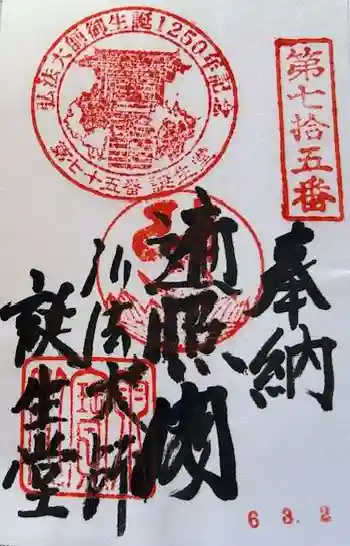 弘法大師御生誕1250年記念
第七十五番 誕生堂
第七拾五番
奉納
遍照閣
弘法大師
誕生堂
6 3. 2